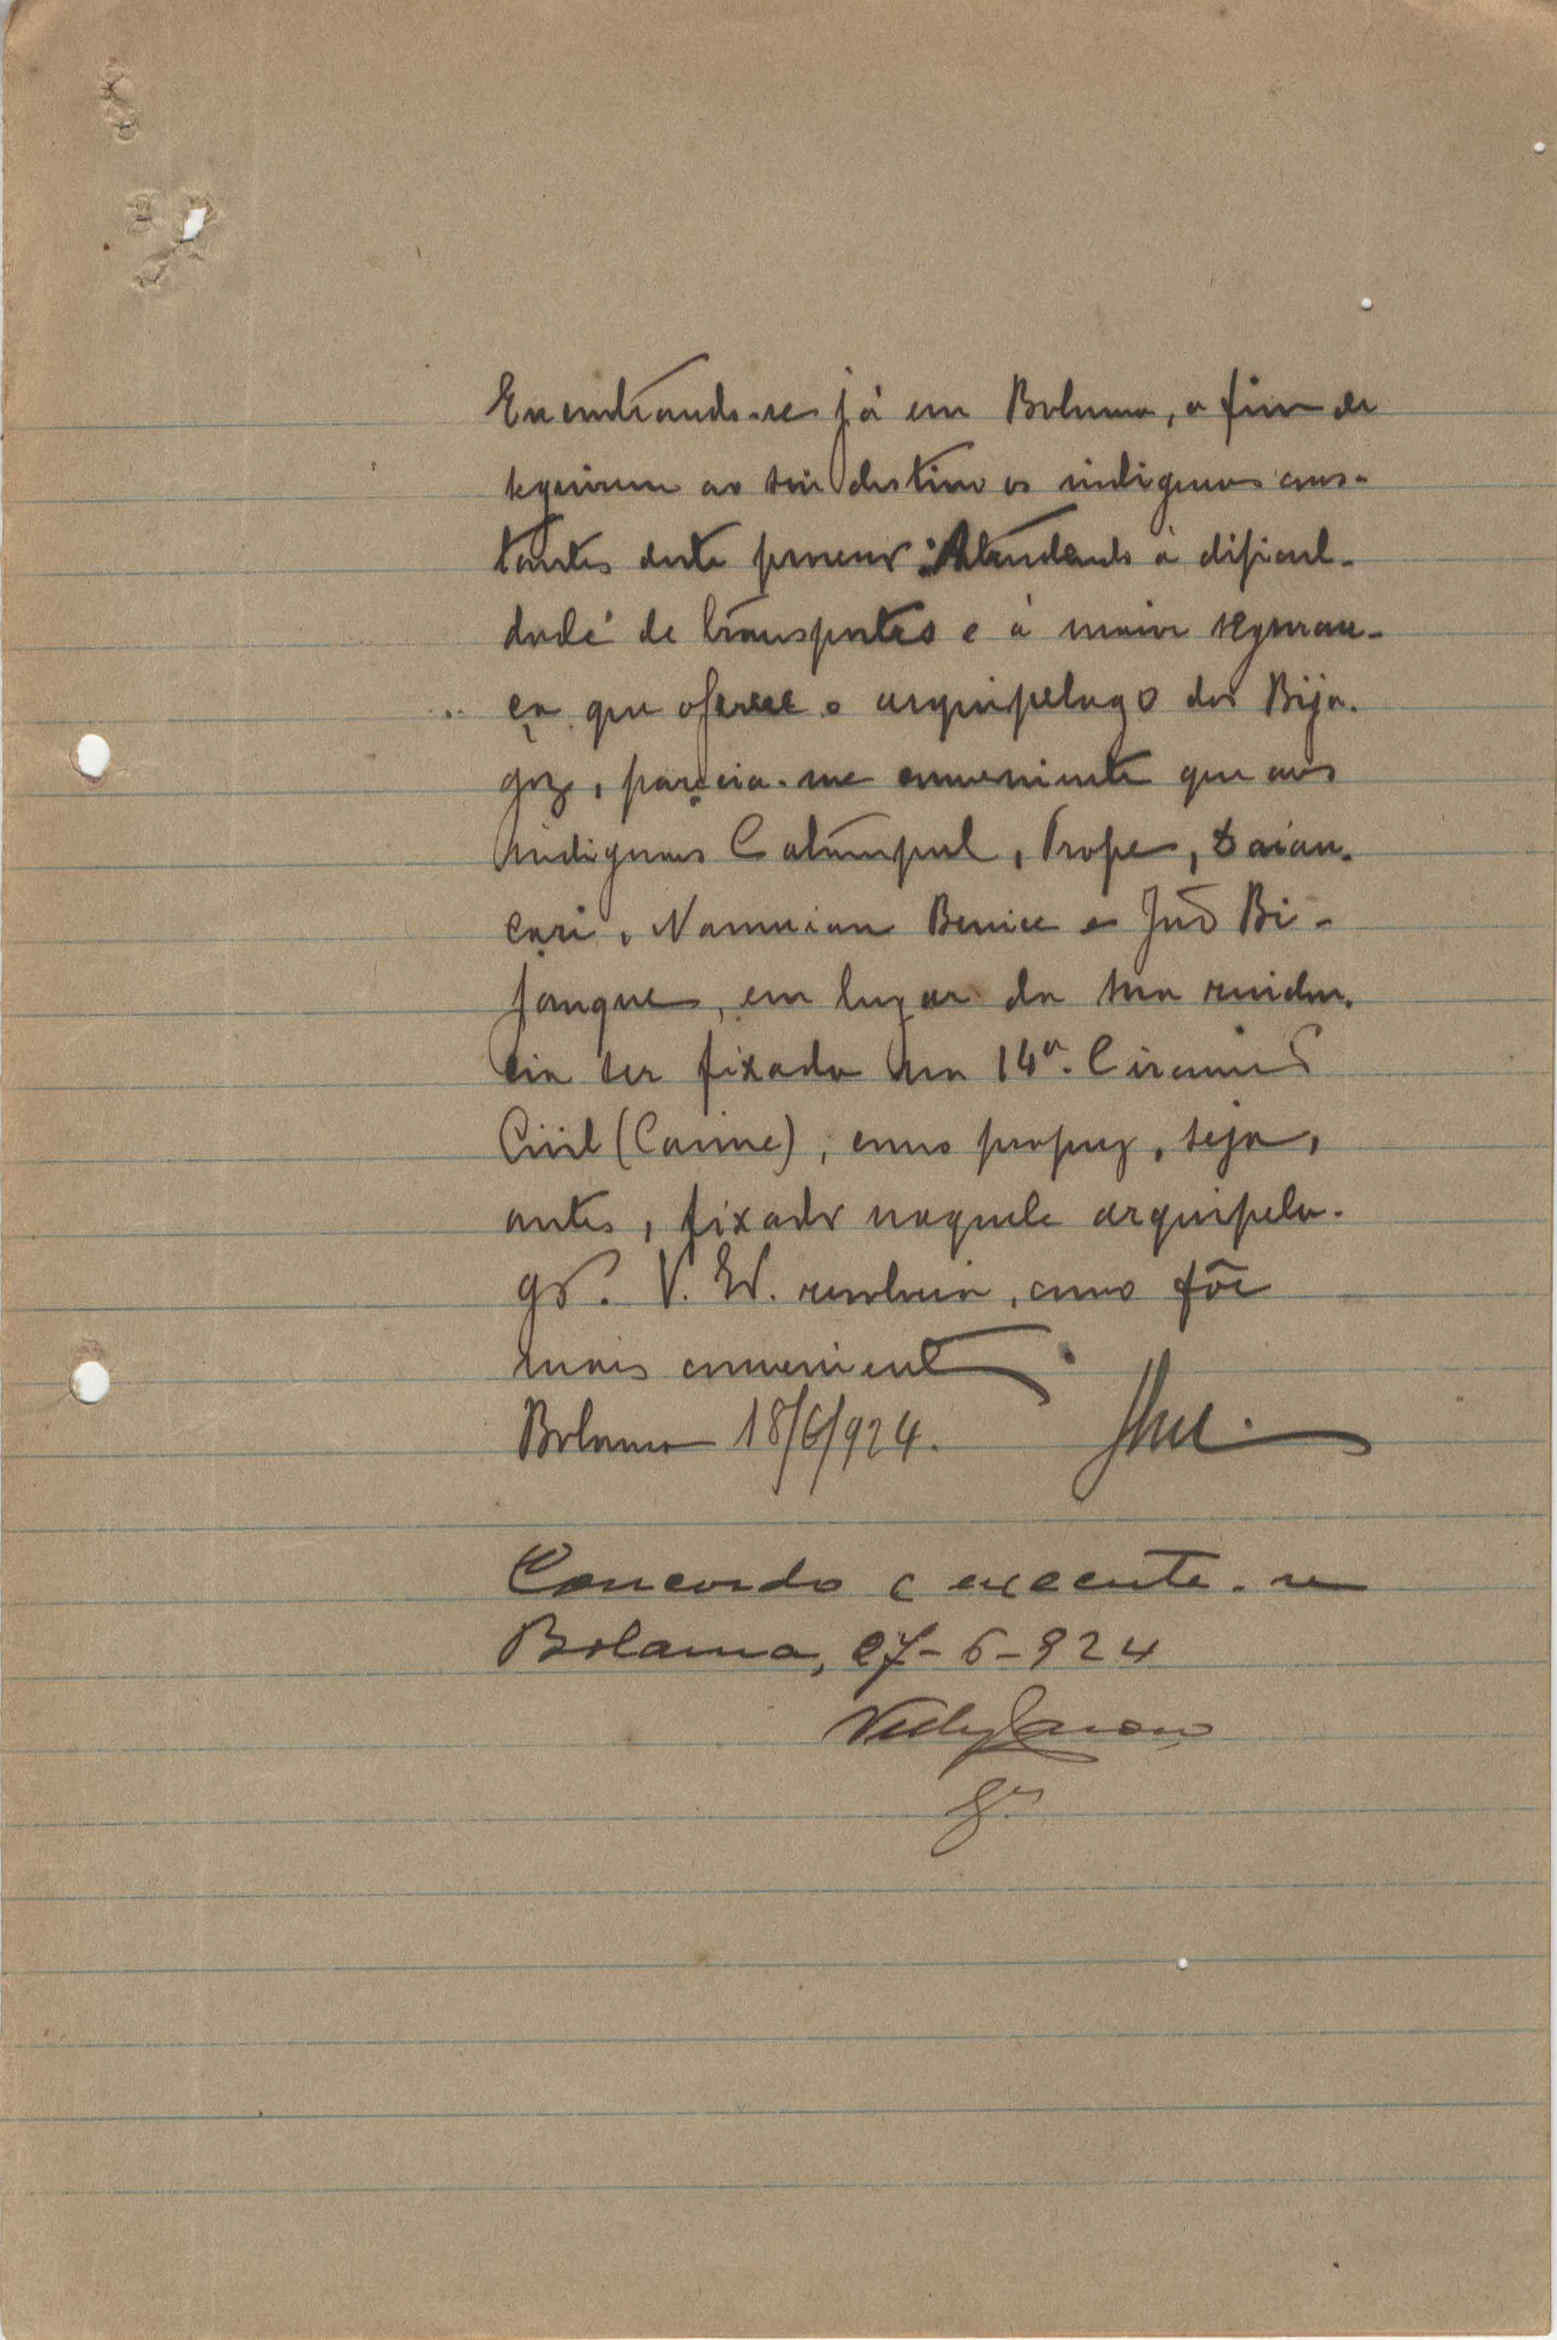 Encontrando-se já em Bolama, a fim de
seguirem ao seu destino os indigenas cons-
tantes deste processo. Atendendo á dificul-
dade de transportes e á maior seguran-
ça que oferece o arquipelago dos Bija-
goz, parecia-me conveniente que aos
indigenas Catumpul, Prope,
Benice e João Bi-
janque, em lugar da sua residen-
cia ser fixada na 14ª. Circuns
Civil (Canne), como propuz, seja,
antes, fixado naquele arquipela-
go. V. Exª. resolverá, como fôr
mais conveniente.
Bolama 18/6/924.
Concordo e execute-se
Bolama, 27-6-924